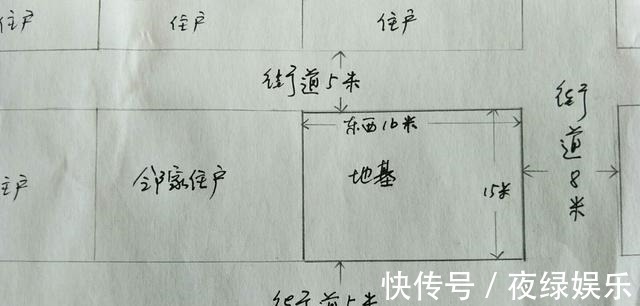 住户
住户
住户
街道5米
街道8米
东西16米
住户
邻家住户
地基
15米
街道5米
快传号/夜绿娱乐